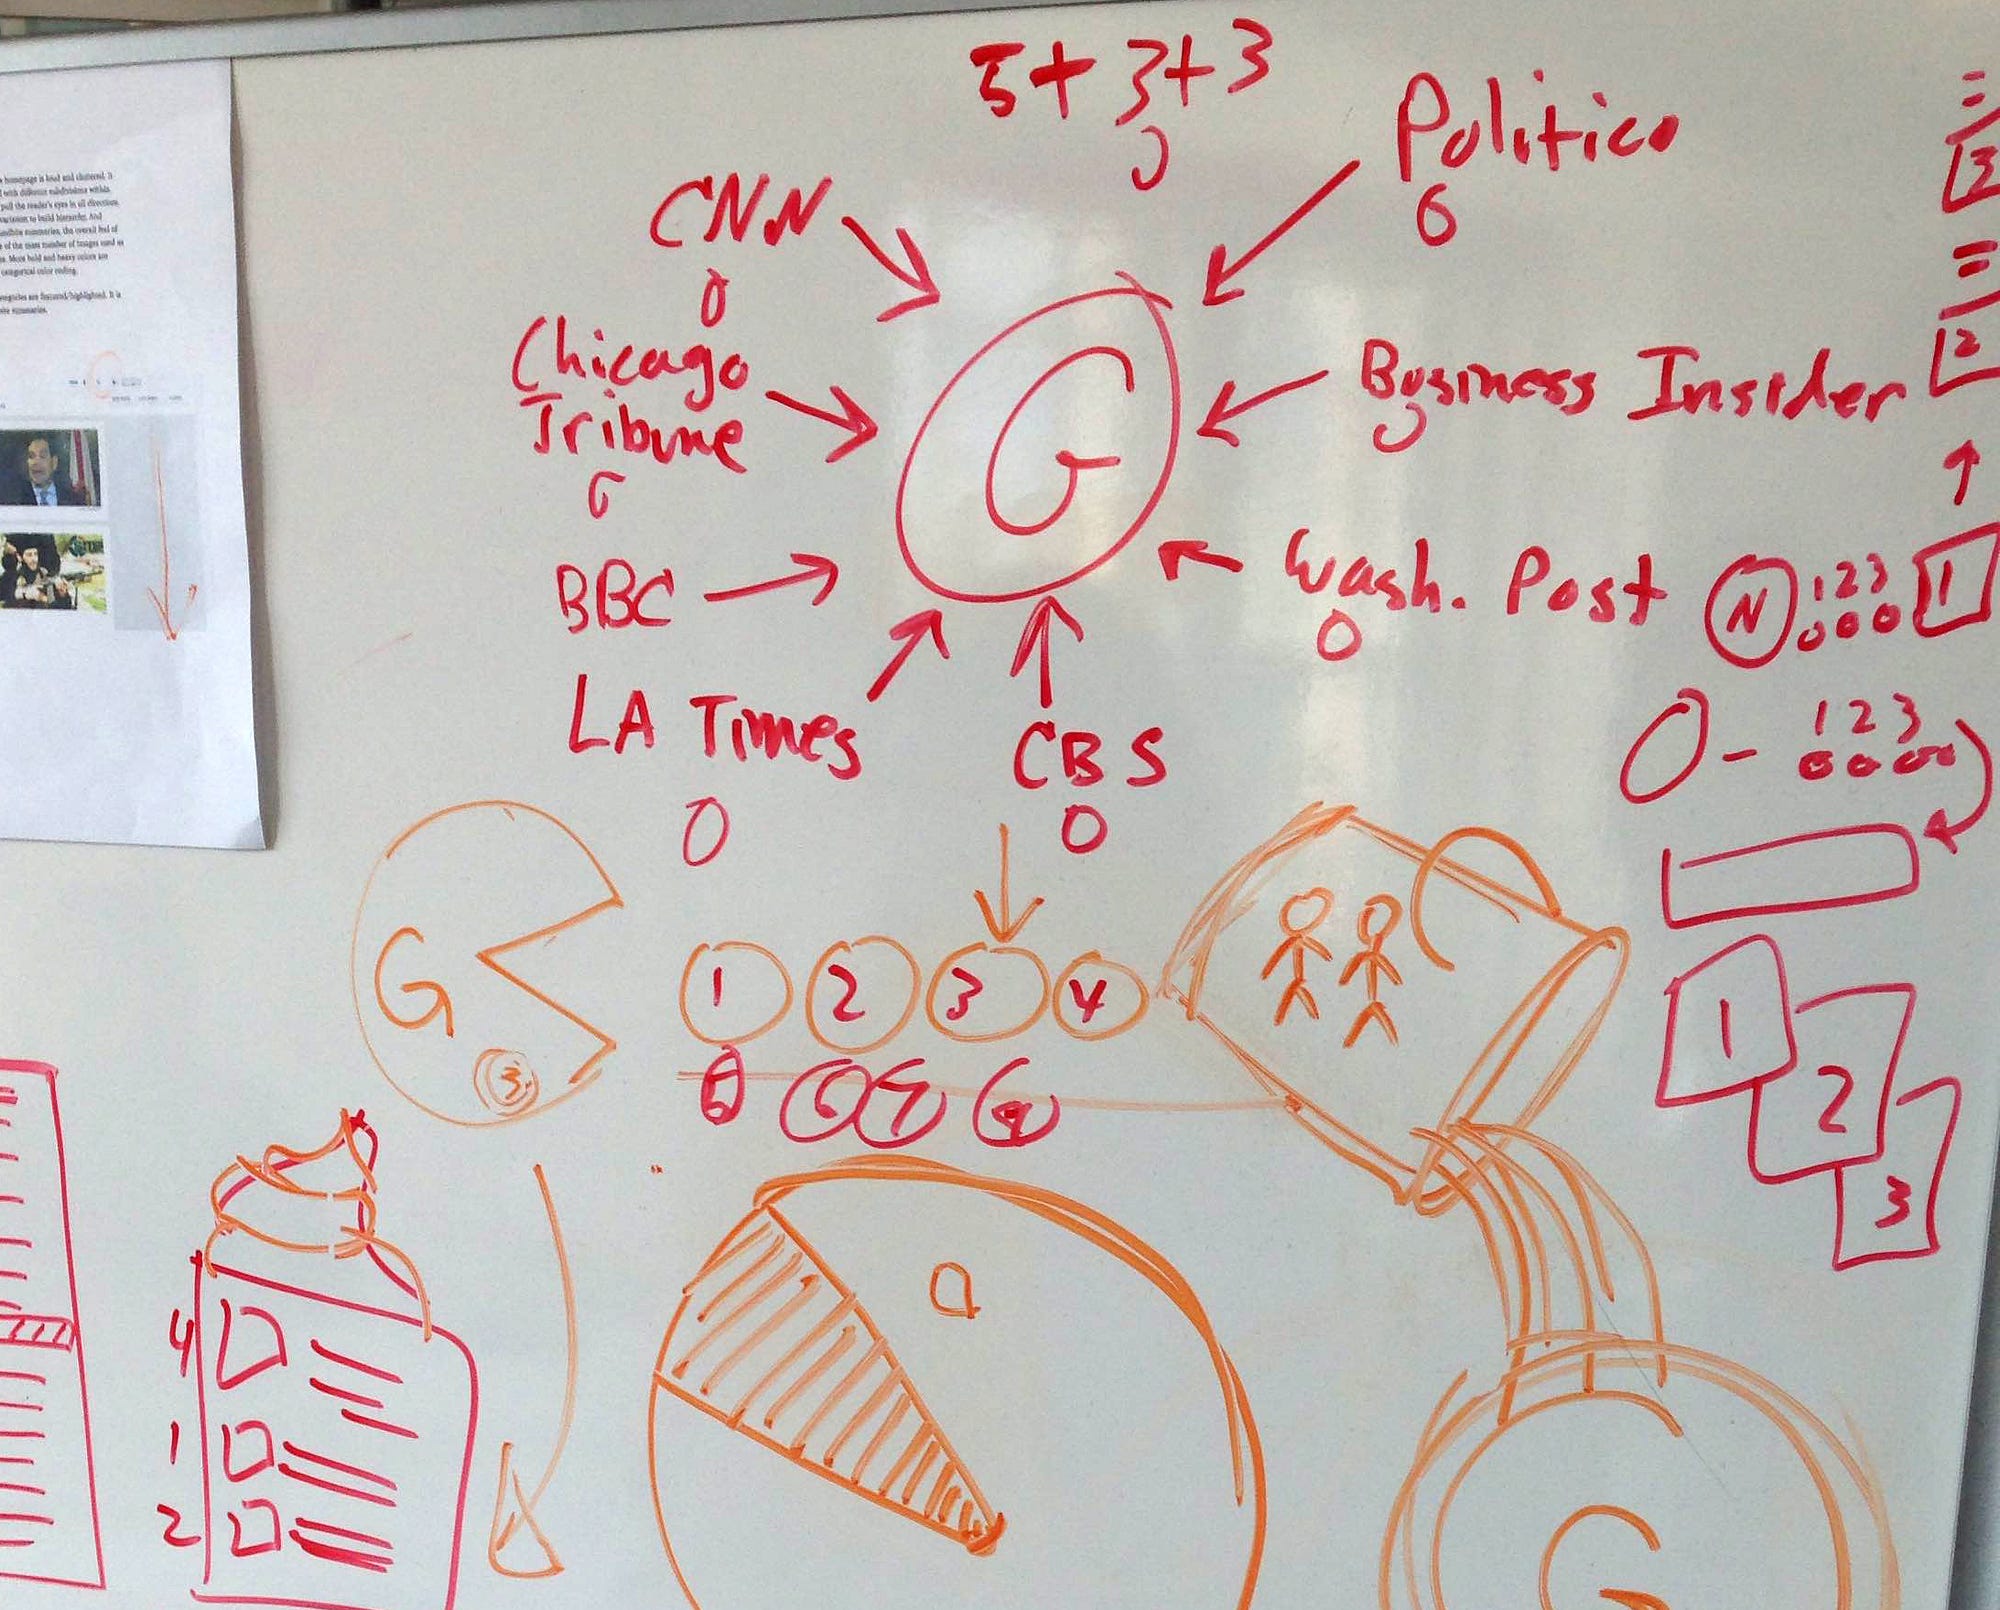 5+3+3
CNN
Politico
6
Chicago
Tribune
G
Business Insider
BBC
Wash. Post
LA Times
CBS
2
2
N
1 2 3
1
1 2 3
G
3
1 2 3 4
1
2
3
4
1
2
G
homepage is loud and cluttered. It
with different subdivisions within.
pull the reader's eyes in all directions.
variation to build hierarchy. And
summaries, the overall feel of
of the mass number of images used as
More bold and heavy colors are
categorical color coding.
categories are featured/highlighted. It is
summaries.